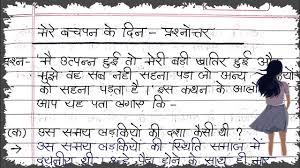 मेरे बचपन के दिन - प्रश्नोत्तर
प्रश्न- 'मैं उत्पन्न हुई तो मेरी बड़ी खातिर हुई औ
मुझे वह सब नहीं सहना पड़ा जो अन्य
को सहना पड़ता है।' इस कथन के आलो
आप यह पता लगाएं कि -
(क) उस समय लड़कियों की दशा कैसी थी ?
उस समय लड़कियों की स्थिति समाज में